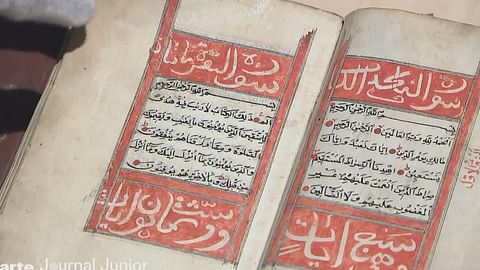 سورة فاتحة الكتا
بسم الله الرحمن الرحيم
الحمد لله رب العالمين الرحمن الرحيم
ملك يوم الدين إياك نعبد وإياك
نستعين اهدنا الصراط المستقيم
صراط الذين أنعمت عليهم غير
المغضوب عليهم ولا الضالين
سبع آيات
سورة البقرة
بسم الله الرحمن الرحيم
الم ذلك الكتاب لا ريب فيه هدى
للمتقين الذين يؤمنون بالغيب ويقيمون
الصلوة ومما رزقناهم ينفقون والذين
يؤمنون بما أنزل إليك وما أنزل
من قبلك وبالآخرة هم يوقنون
وست وثمانون آيات
arte Journal Junior